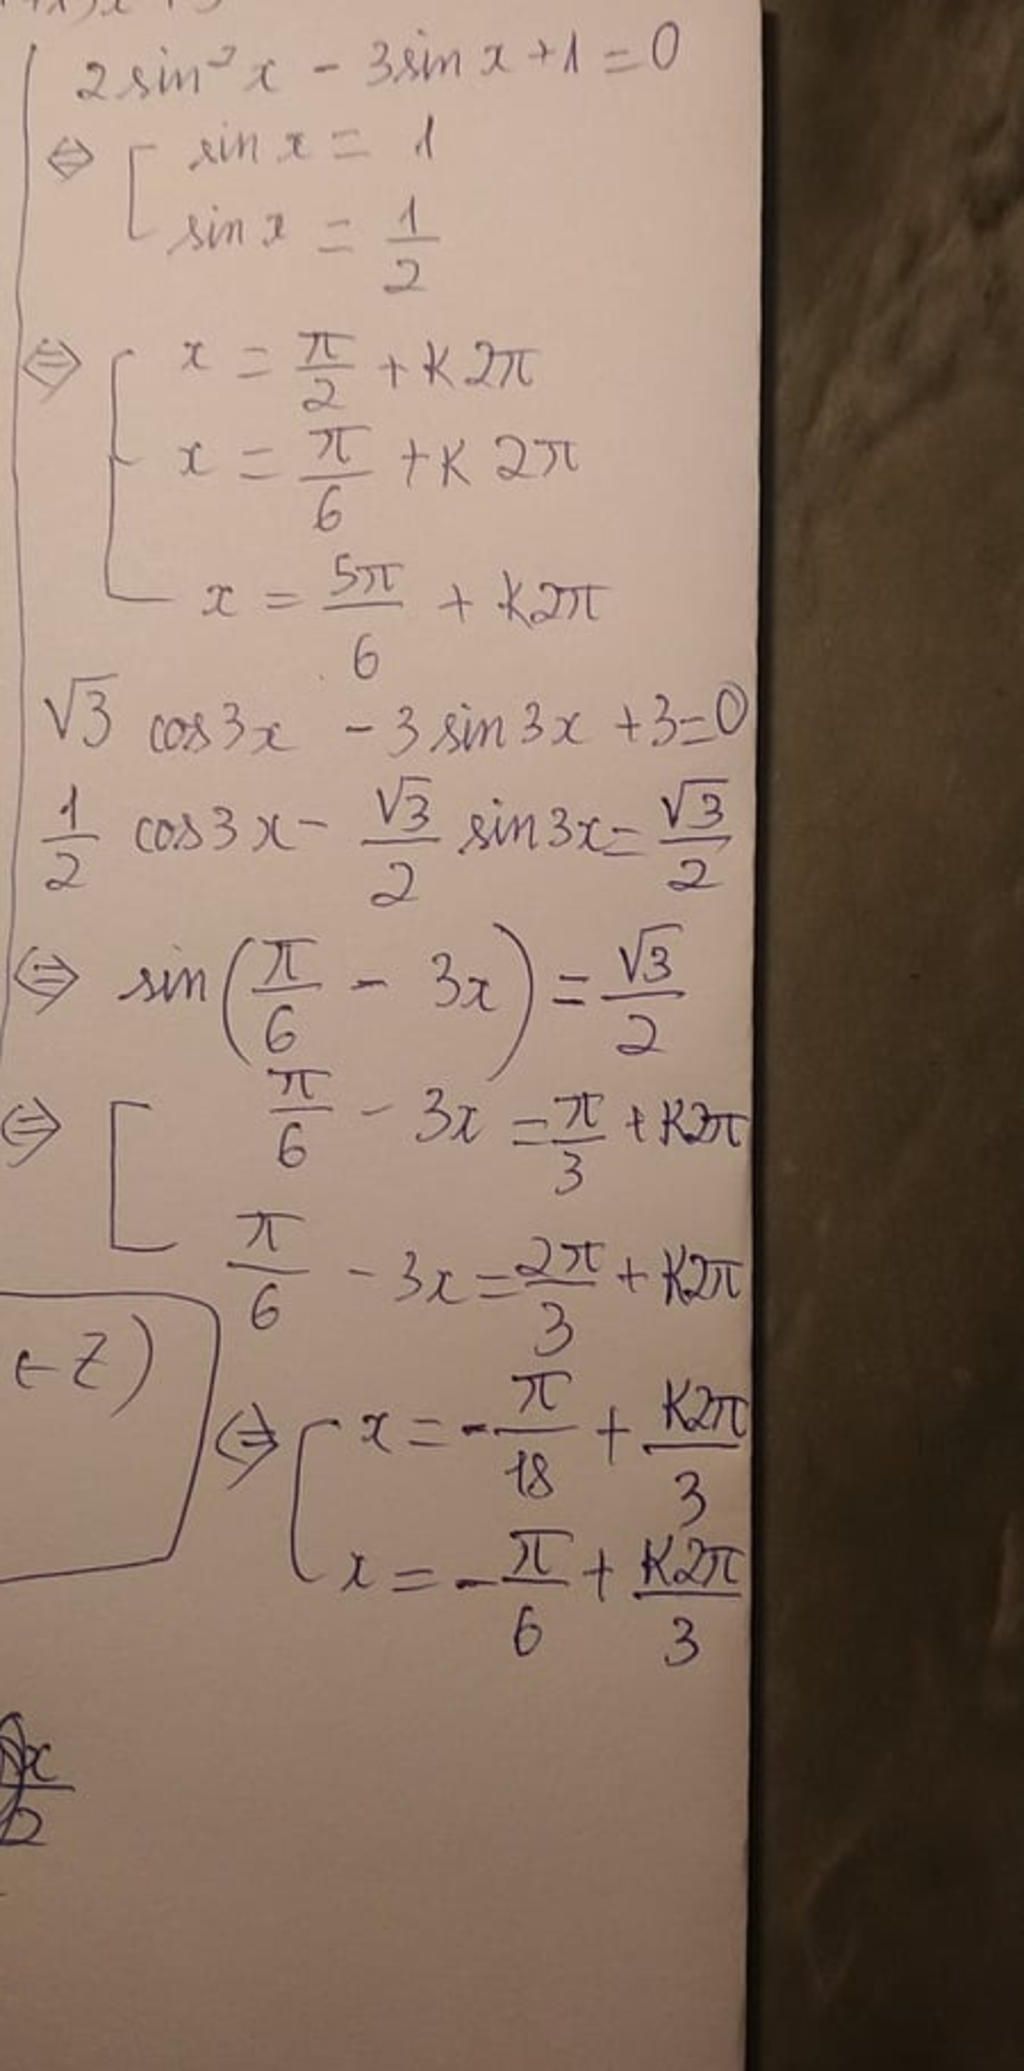 2sin²x - 3sinx + 1 = 0
⇔ [ sinx = 1
sinx = 1/2
⇔ [ x = π/2 + K2π
x = π/6 + K2π
x = 5π/6 + K2π
√3 cos3x - 3sin3x + 3 = 0
1/2 cos3x - √3/2 sin3x = √3/2
⇔ sin(π/6 - 3x) = √3/2
⇔ [ π/6 - 3x = π/3 + K2π
π/6 - 3x = 2π/3 + K2π
Z)
⇔ [ x = -π/18 + K2π/3
x = -π/6 + K2π/3